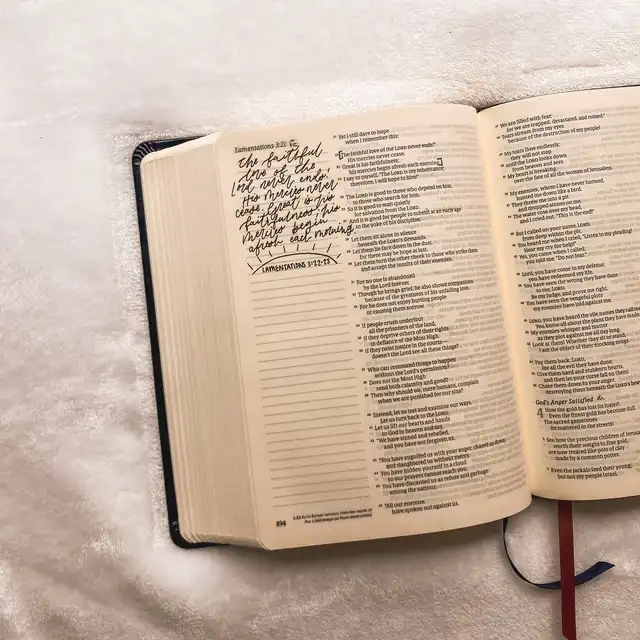 Lamentations 3:21
the faithful
love of the
Lord never ends!
His mercies never
cease. Great is his
faithfulness; his
mercies begin
afresh each morning.
LAMENTATIONS 3:22-23
894
21 Yet I still dare to hope
when I remember this:
22 The faithful love of the LORD never ends!
His mercies never cease.
23 Great is his faithfulness;
his mercies begin afresh each morning.
24 I say to myself, "The LORD is my inheritance;
therefore, I will hope in him!"
25 The LORD is good to those who depend on him,
to those who search for him.
26 So it is good to wait quietly
for salvation from the LORD.
27 And it is good for people to submit at an early age
to the yoke of his discipline:
28 Let them sit alone in silence
beneath the LORD's demands.
29 Let them lie face down in the dust,
for there may be hope at last.
30 Let them turn the other cheek to those who strike them
and accept the insults of their enemies.
31 For no one is abandoned
by the Lord forever.
32 Though he brings grief, he also shows compassion
because of the greatness of his unfailing love.
33 For he does not enjoy hurting people
or causing them sorrow.
34 If people crush underfoot
all the prisoners of the land,
35 if they deprive others of their rights
in defiance of the Most High,
36 if they twist justice in the courts—
doesn't the Lord see all these things?
37 Who can command things to happen
without the Lord's permission?
38 Does not the Most High
send both calamity and good?
39 Then why should we, mere humans, complain
when we are punished for our sins?
40 Instead, let us test and examine our ways.
Let us turn back to the LORD.
41 Let us lift our hearts and hands
to God in heaven and say,
42 "We have sinned and rebelled,
and you have not forgiven us.
43 "You have engulfed us with your anger, chased us down,
and slaughtered us without mercy.
44 You have hidden yourself in a cloud
so our prayers cannot reach you.
45 You have discarded us as refuse and garbage
among the nations.
46 "All our enemies
have spoken out against us.
47 We are filled with fear,
for we are trapped, devastated, and ruined."
48 Tears stream from my eyes
because of the destruction of my people!
49 My tears flow endlessly;
they will not stop
50 until the LORD looks down
from heaven and sees.
51 My heart is breaking
over the fate of all the women of Jerusalem.
52 My enemies, whom I have never harmed,
53 They threw me into a pit
and dropped stones on me.
54 The water rose over my head,
and I cried out, "This is the end!"
55 But I called on your name, LORD,
from deep within the pit.
56 You heard me when I cried, "Listen to my pleading!
Hear my cry for help!"
57 Yes, you came when I called;
58 Lord, you have come to my defense;
you have redeemed my life.
59 You have seen the wrong they have done
to me, LORD.
Be my judge, and prove me right.
60 You have seen the vengeful plots
my enemies have laid against me.
61 LORD, you have heard the vile names they
You know all about the plans they have
62 My enemies whisper and mutter
as they plot against me all day long.
63 Look at them! Whether they sit or stand,
I am the object of their mocking songs.
64 Pay them back, LORD,
for all the evil they have done.
65 Give them hard and stubborn hearts,
and then let your curse fall on them!
66 Chase them down in your anger,
destroying them beneath the LORD's
God's Anger Satisfied
4 How the gold has lost its luster!
Even the finest gold has become dull.
The sacred gemstones
lie scattered in the streets!
2 See how the precious children of Jerusalem,
worth their weight in fine gold,
are now treated like pots of clay
made by a common potter.
3 Even the jackals feed their young,
but not my people Israel.